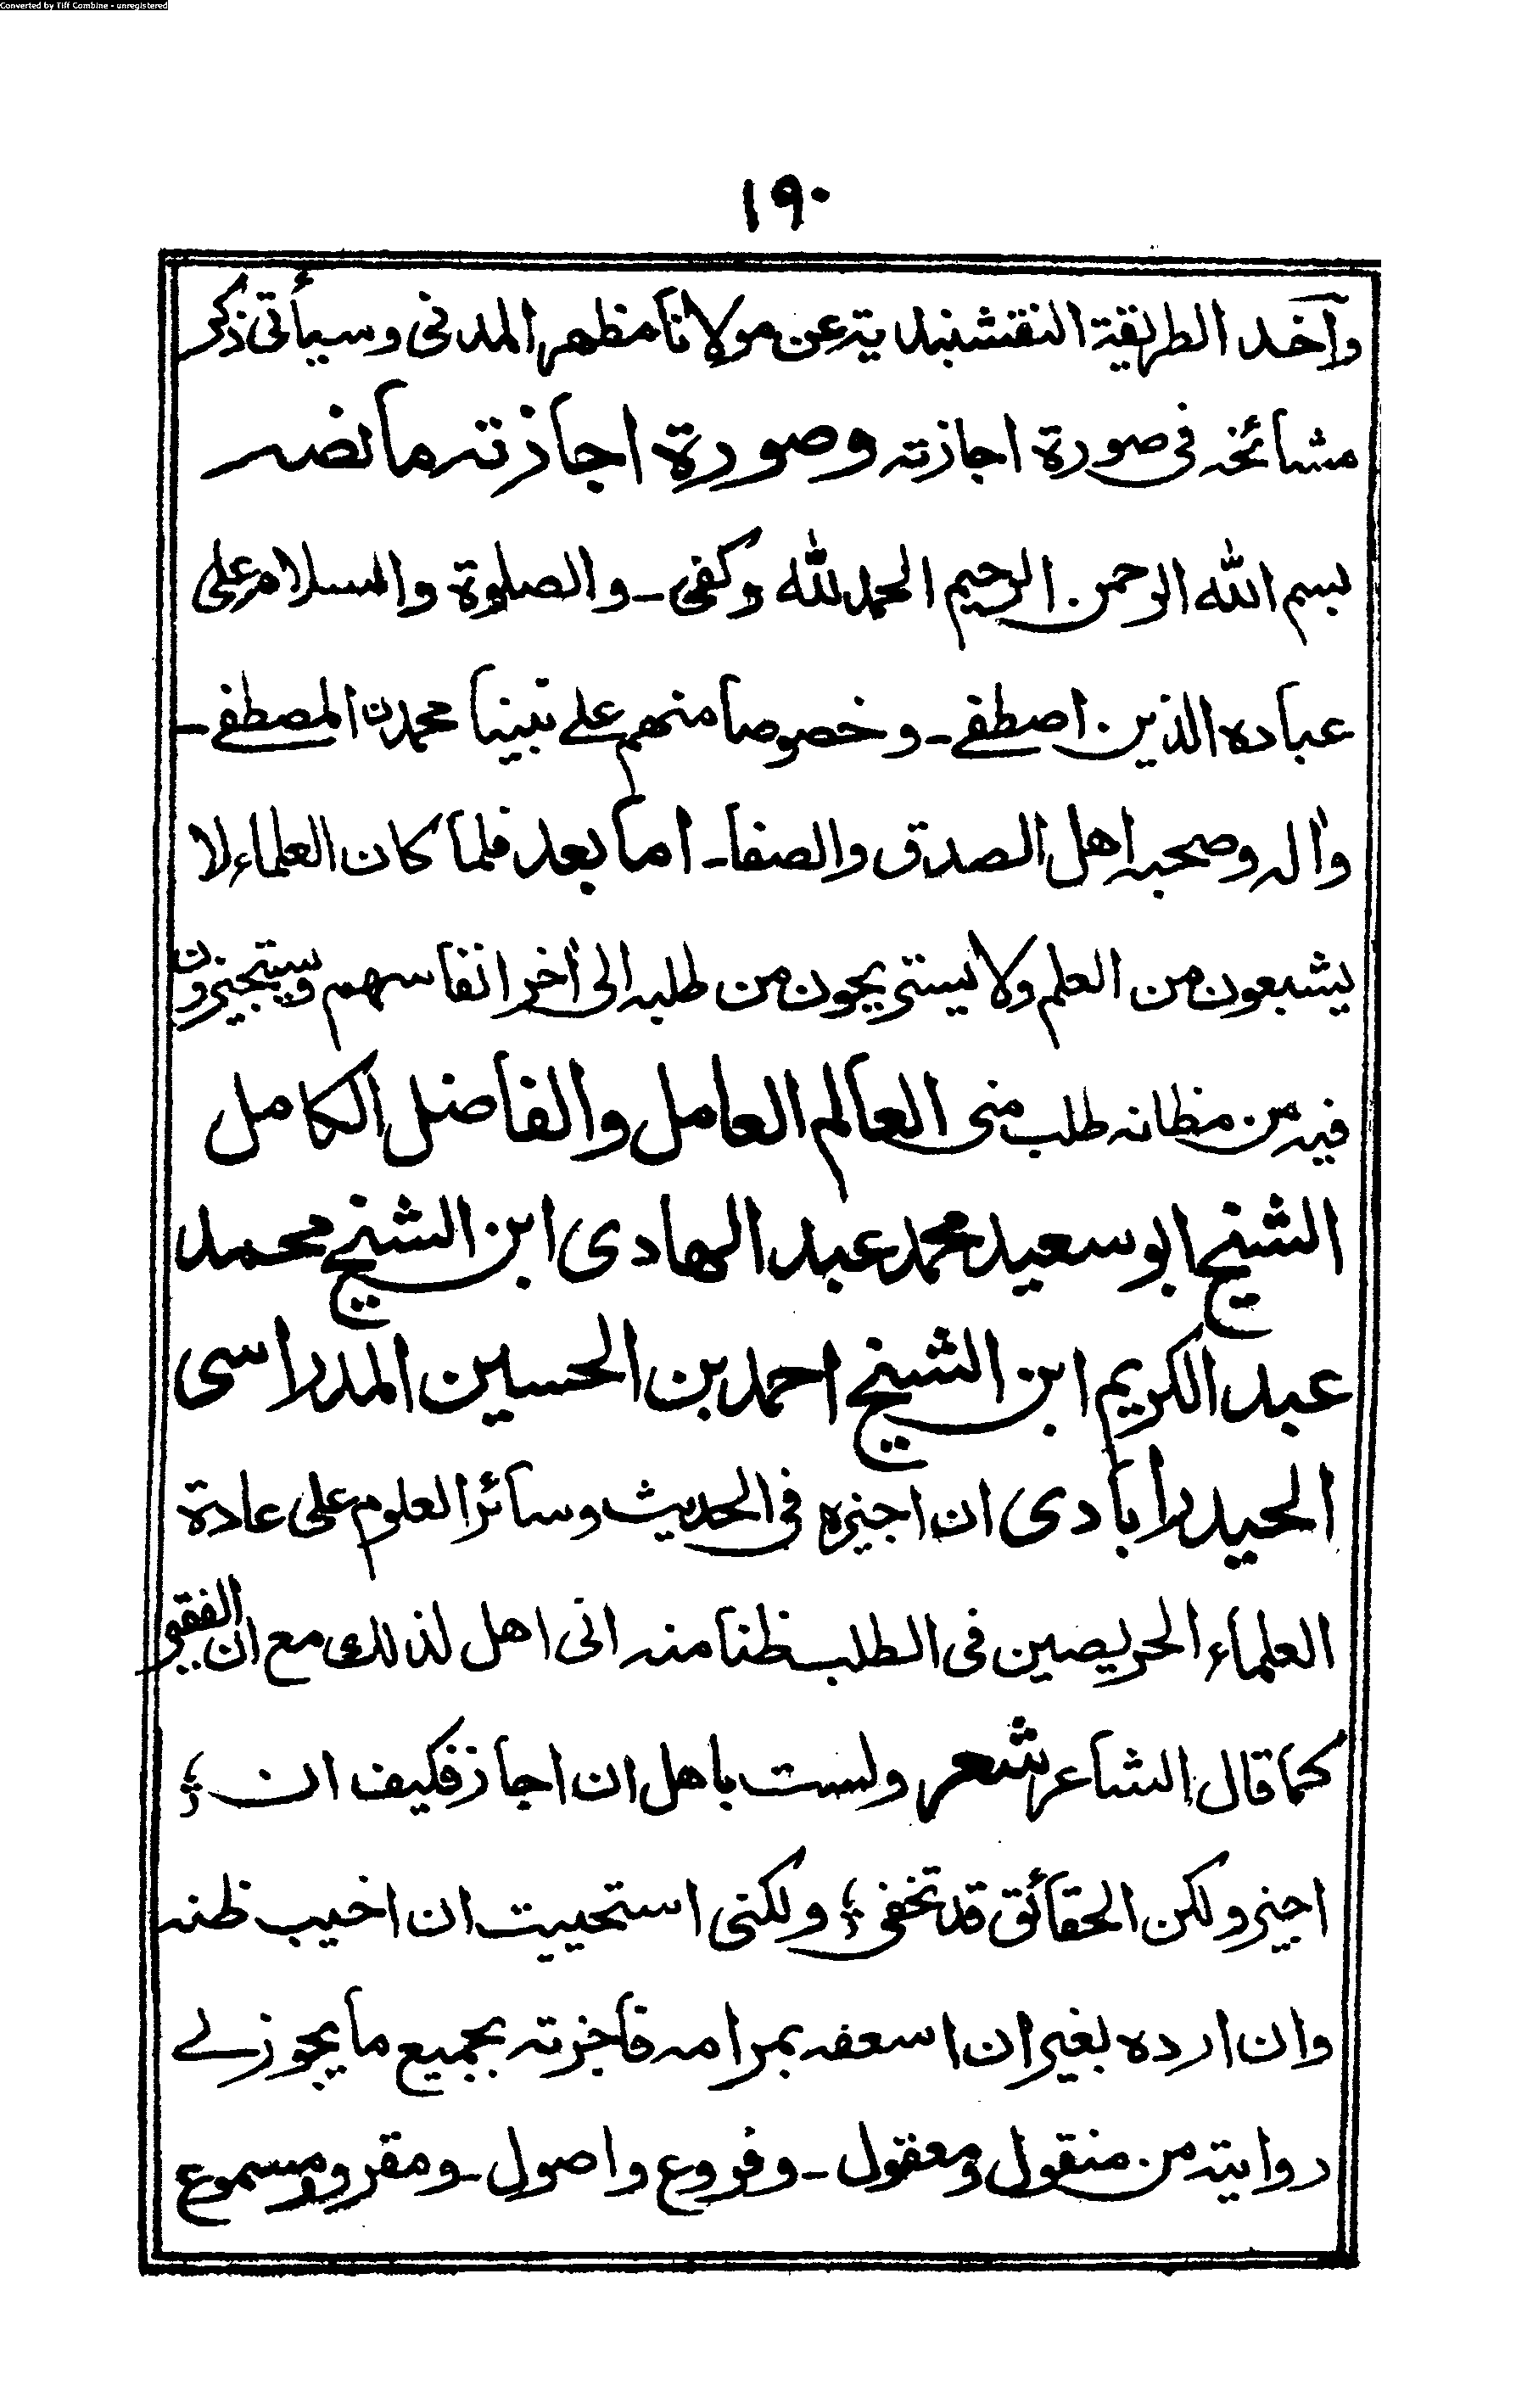 Converted by Tiff Combine - unregistered
١٩٠
وآخذ الطريقة النقشبندية عن مولانا مظهر المدنى وسيأتى ذكر
مشائخه فى صورة اجازته وصورة اجازته ما نصه
بسم الله الرحمن الرحيم الحمد لله وكفى ـ والصلوة والسلام على
عباده الذين اصطفے ـ وخصوصا منهم علے نبينا محمدن المصطفے ـ
واٰله وصحبه اهل الصدق والصفا ـ اما بعد فلما كان العلماء لا
يشبعون من العلم ولا يستريحون من طلبه الى اٰخر انفاسهم ويستجيزون
فيه من مظانه طلب منى العالم العامل والفاضل الكامل
الشيخ ابو سعيد محمد عبد الهادى ابن الشيخ محمد
عبد الكريم ابن الشيخ احمد بن الحسين المدراسى
الحيدراٰبادى ان اجيزه فى الحديث وسائر العلوم على عادة
العلماء الحريصين فى الطلب ظنا منه انى اهل لذلك مع ان الفقير
كما قال الشاعر شعر ولست باهل ان اجاز فكيف ان ؛
اجيز ولكن الحقائق قد تخفى ؛ ولكنى استحييت ان اخيب ظنه
وان ارده بغير ان اسعفه بمرامه فاجزته بجميع ما يجوز لے
روايته من منقول ومعقول ـ وفروع واصول ـ ومقرو ومسموع